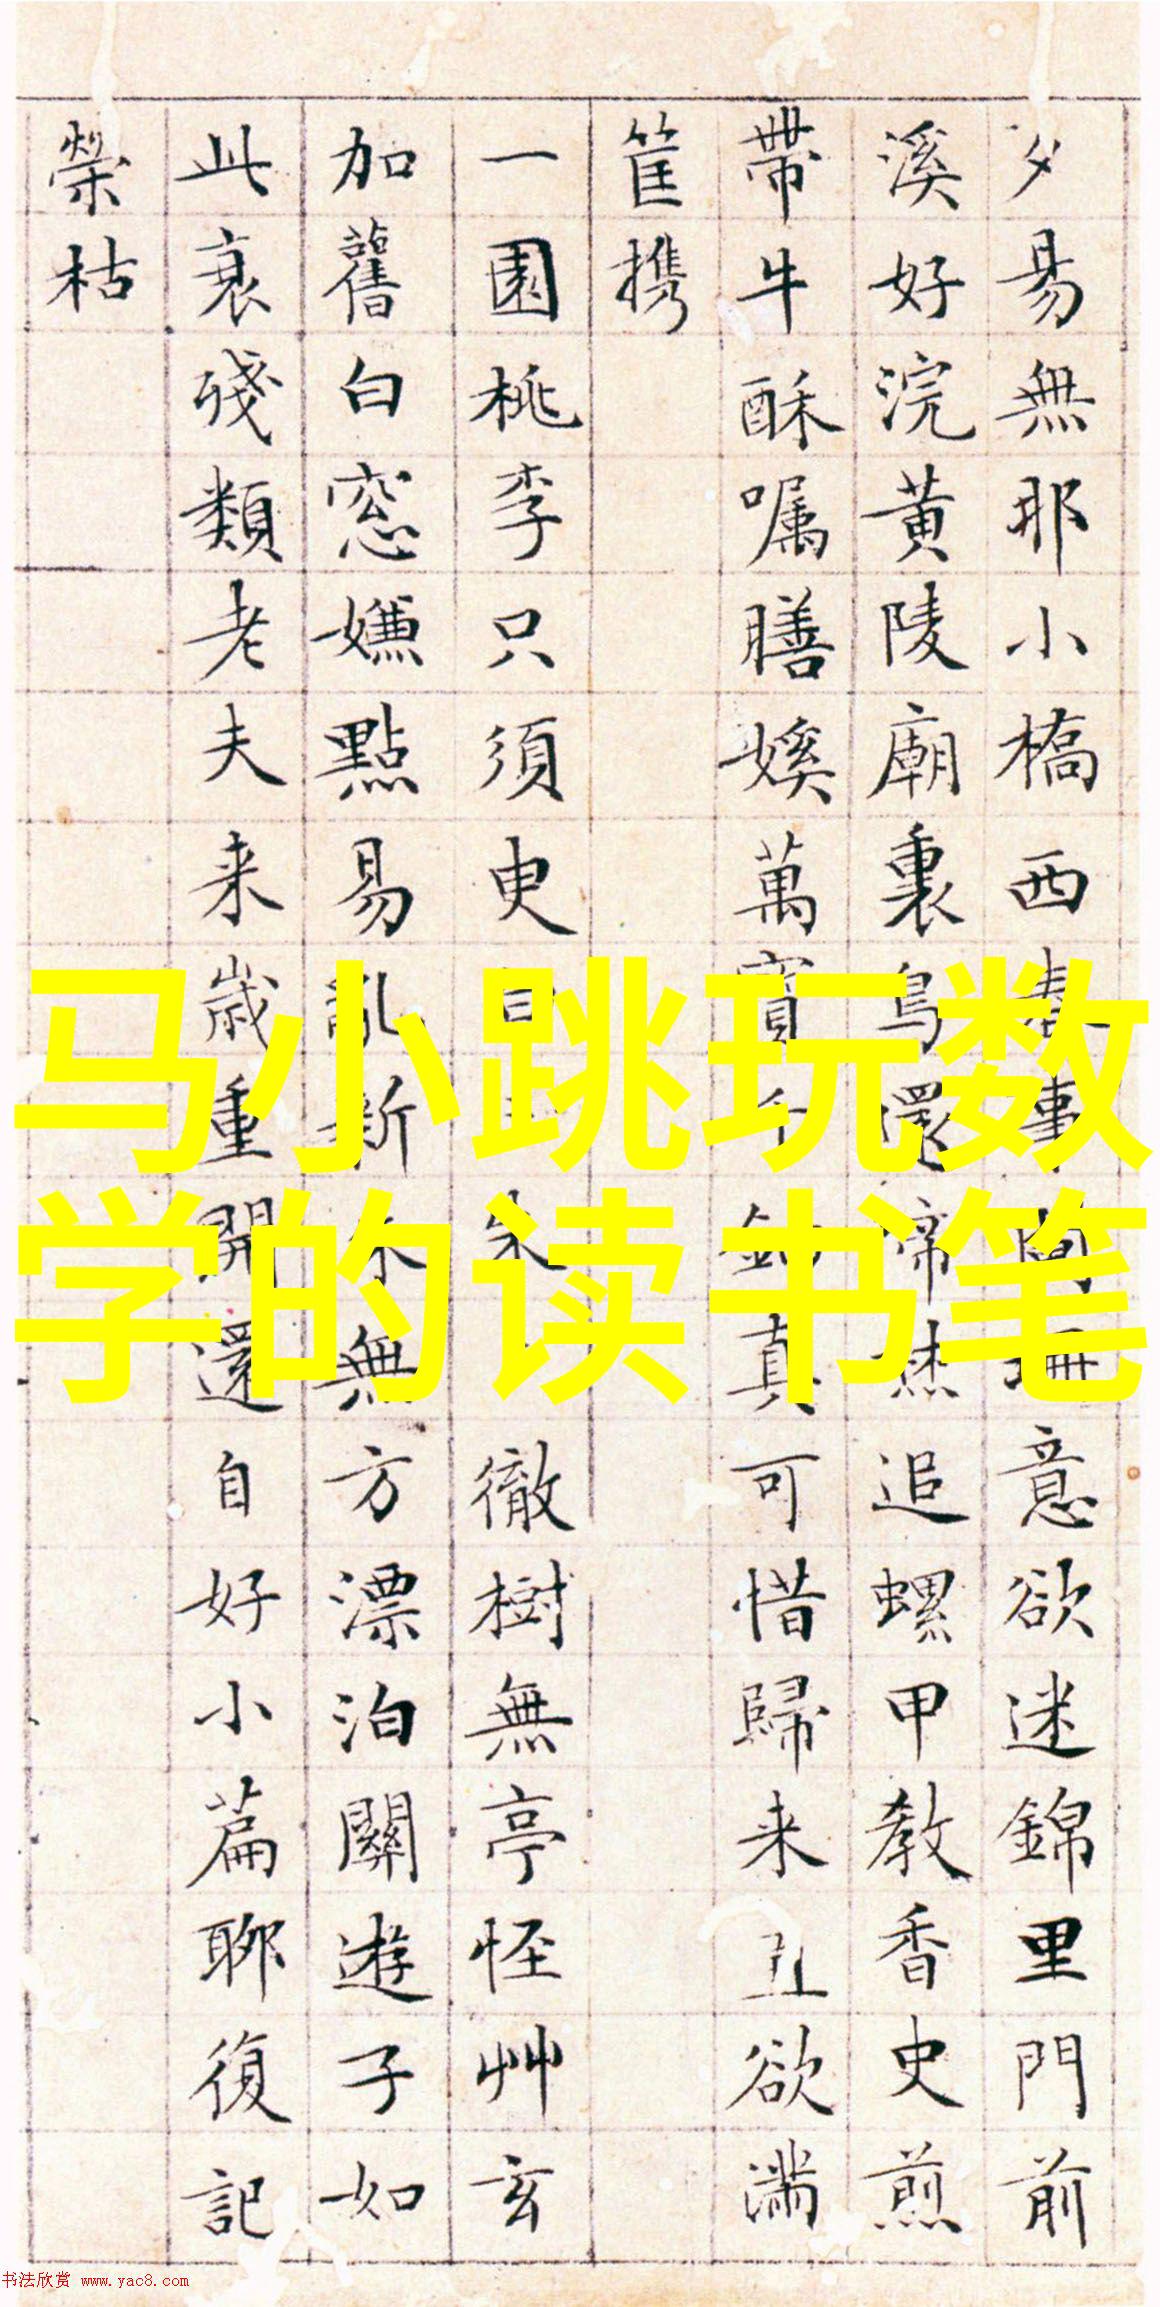 夕易無耶小橋西春事闌珊意欲迷錦里門前
溪好浣黃陵廟裏鳥還啼焦追螺甲教香史煎
帶牛酥嘱膳媛萬寶千釵真可惜歸来丑欲满
筐携
一園桃李只須更徹樹無亭怪艸玄
加舊白窓嫌點易亂新無方漂泊關遊子如
此衰殘類老夫来歲重開還自好小篇聊復記
榮枯
马小跳玩数
学的读书笔
书法欣赏 www.yac8.com